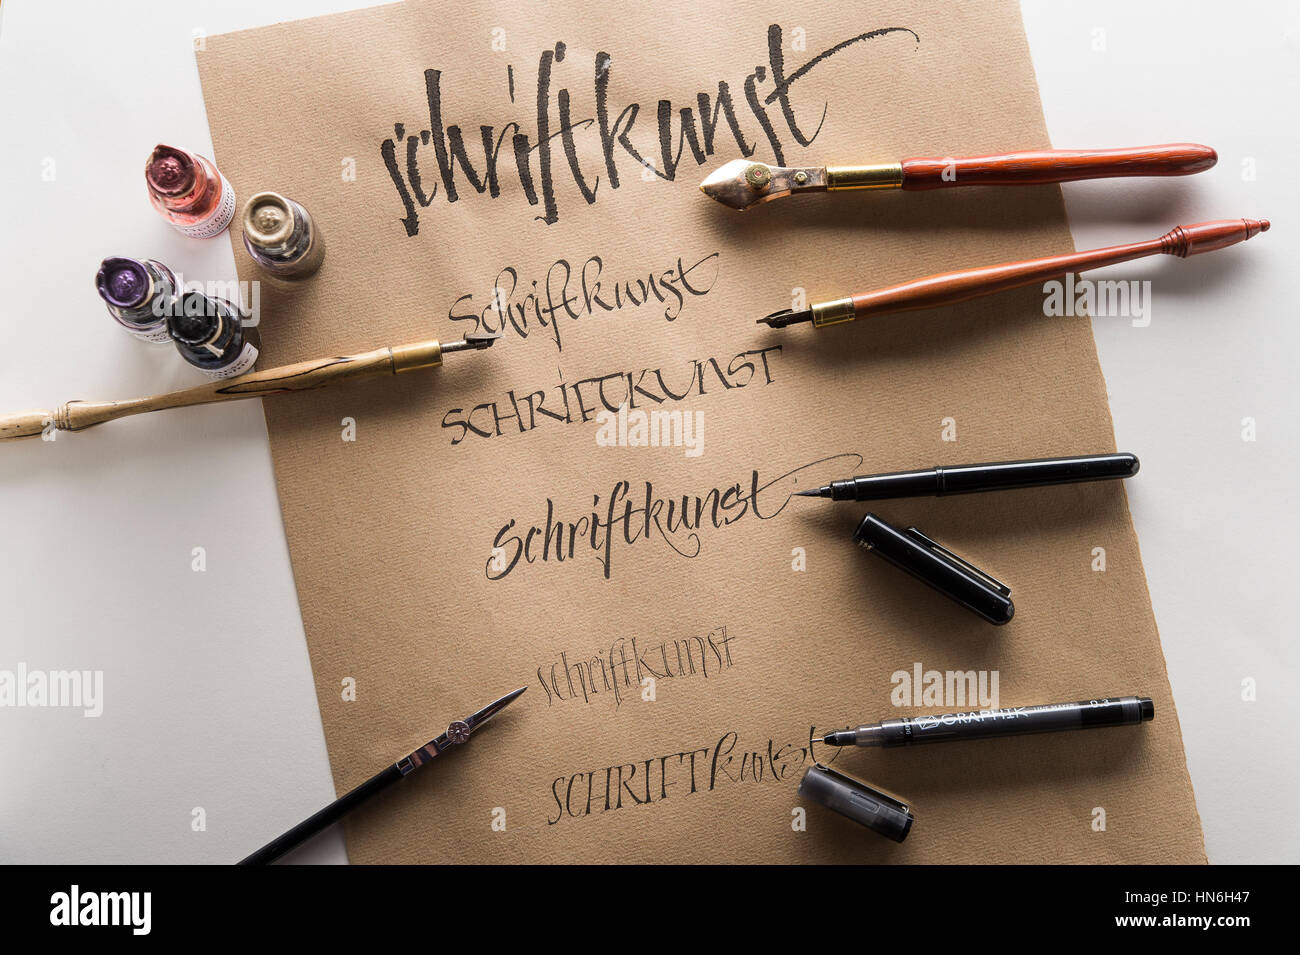 schriftkunst
Schriftkunst
SCHRIFTKUNST
Schriftkunst
schriftkunst
SCHRIFTkunst
GRAPHIK
alamy
alamy
Image ID: HN6H47
www.alamy.com